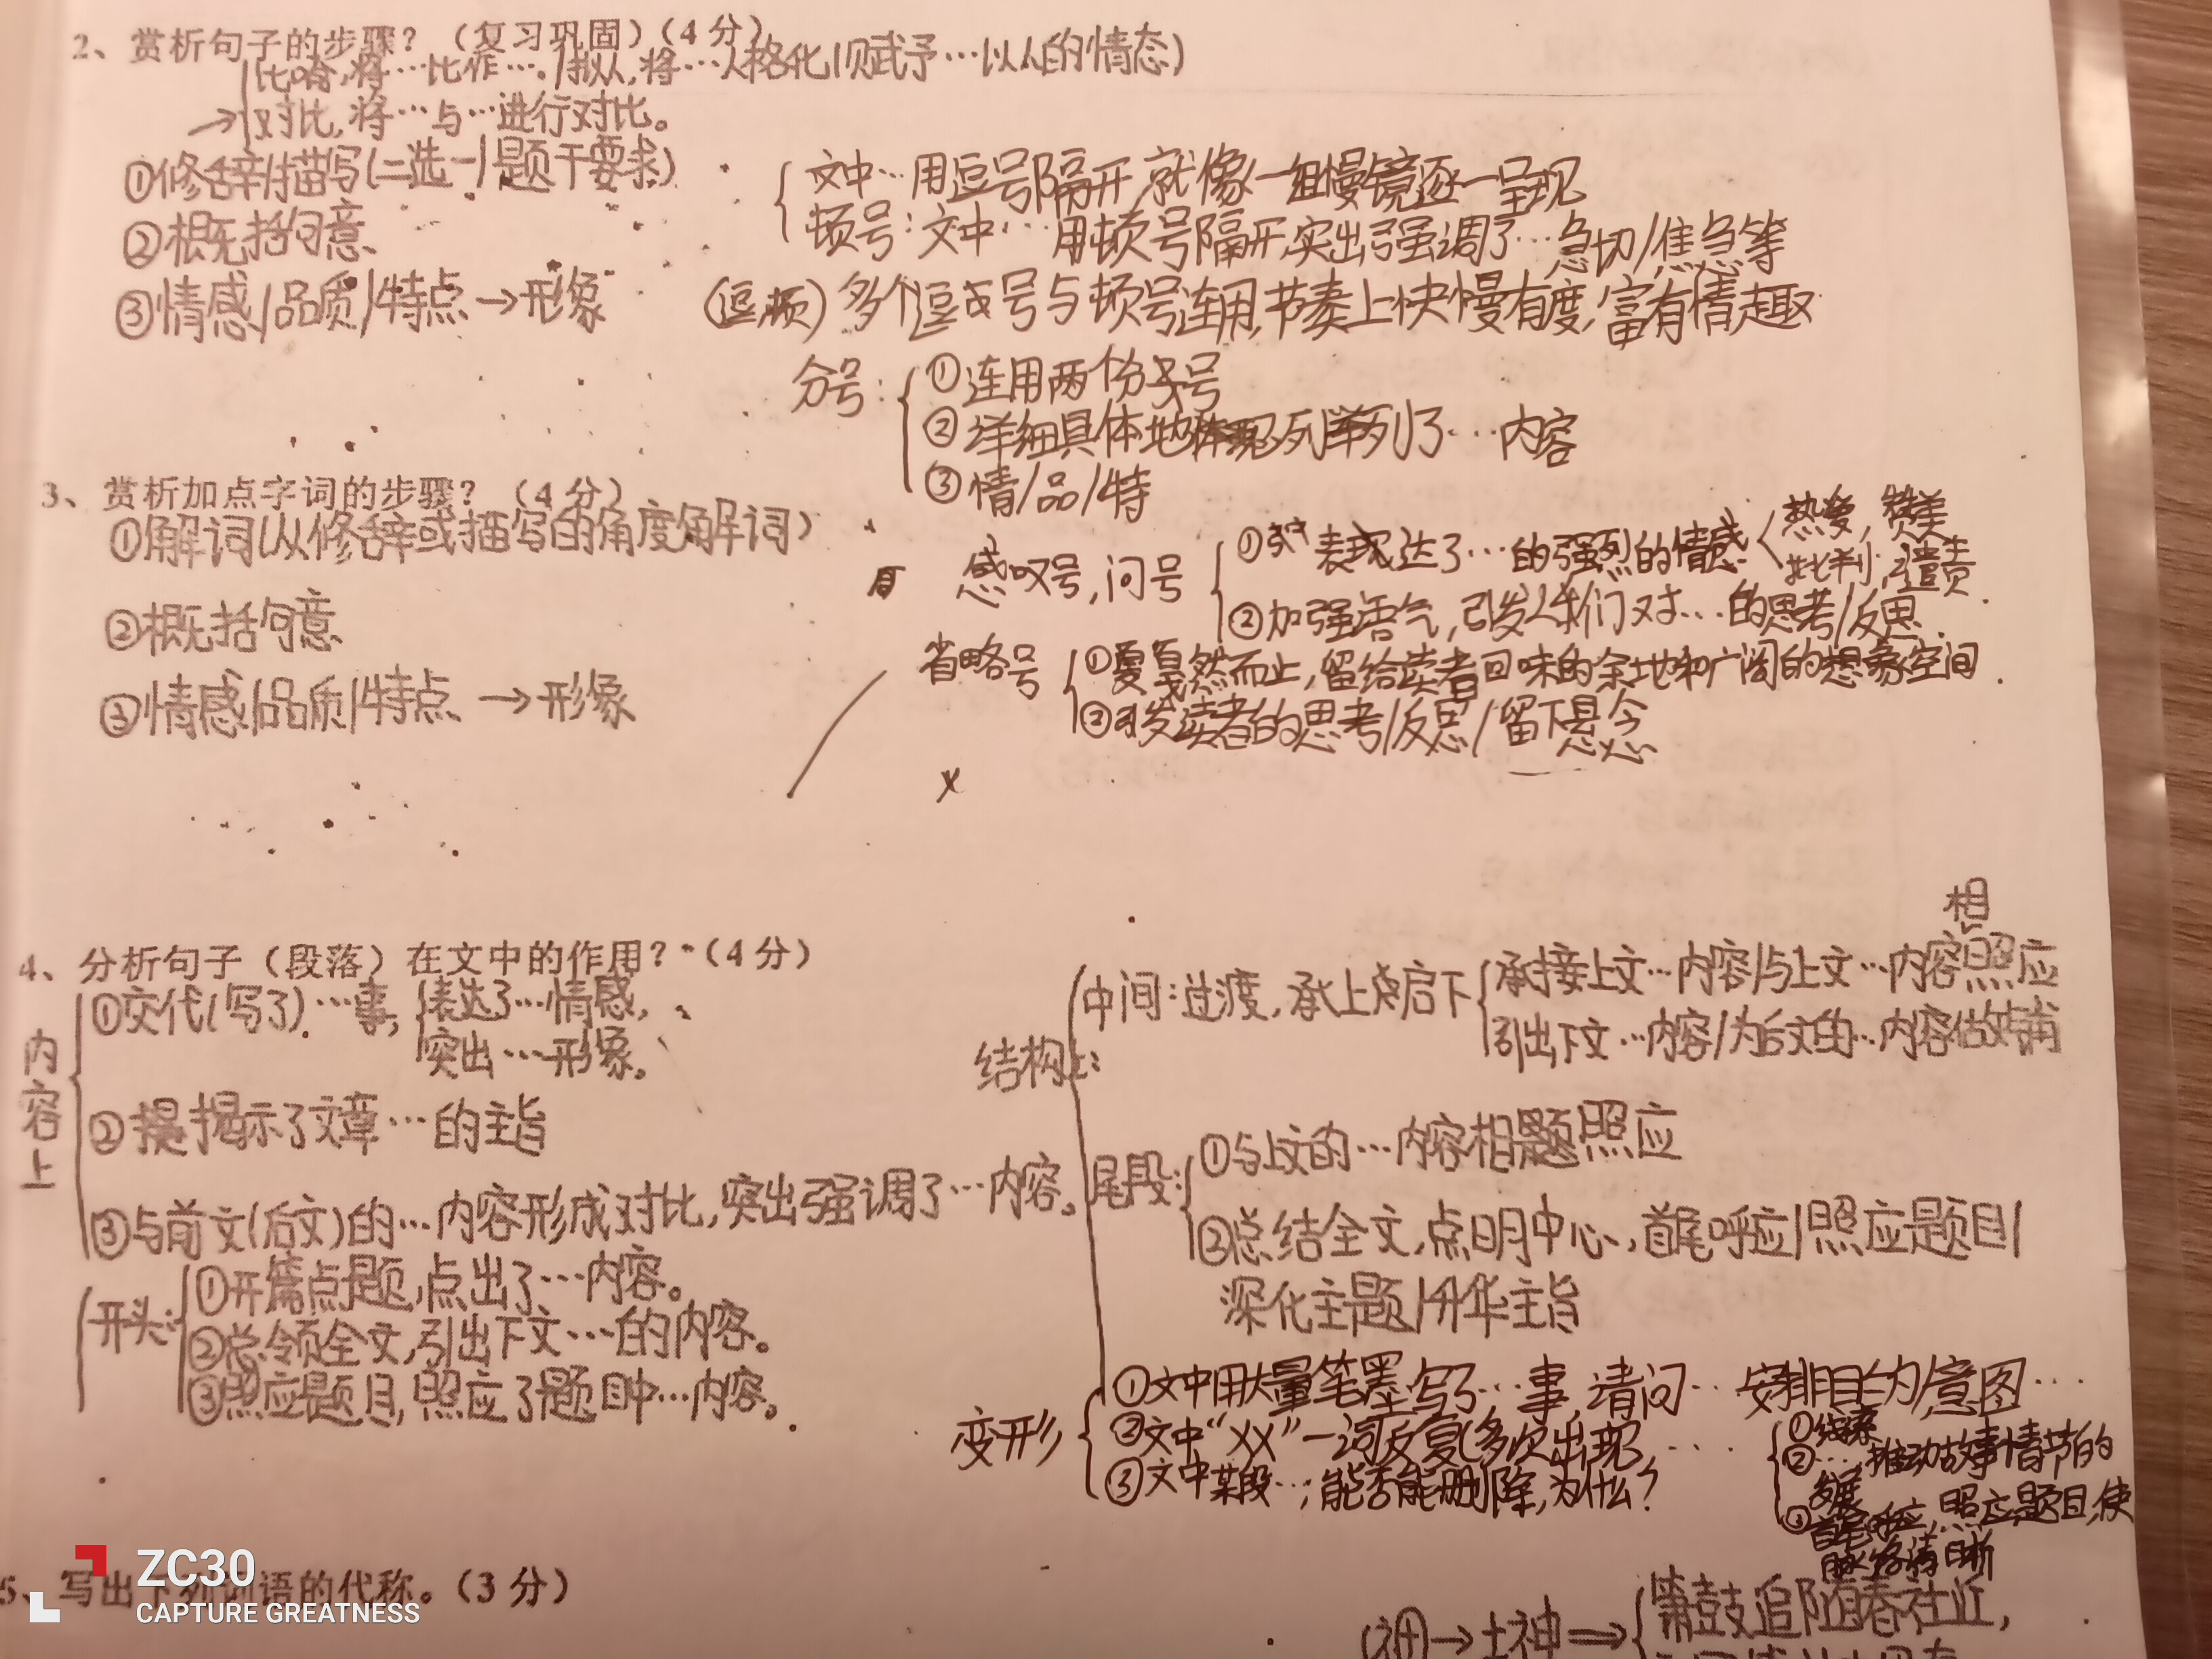 2、赏析句子的步骤？（复习巩固）（4分）
比喻,将…比作…。/拟人,将…人格化(赋予…以人的情态)
→对比,将…与…进行对比。
①修辞/描写(二选一/题干要求)
②概括句意
③情感/品质/特点→形象
文中…用逗号隔开,就像一组慢镜逐一呈现
顿号:文中…用顿号隔开,突出强调了…急切/焦急等
(逗,顿)多个逗号与顿号连用,节奏上快慢有度,富有情趣
分号:
①连用两个分号
②详细具体地列举了…内容
③情/品/特
3、赏析加点字词的步骤？（4分）
①解词(从修辞或描写的角度解词)
②概括句意
③情感/品质/特点→形象
感叹号,问号
①表达了…的强烈的情感
热爱,赞美
批判,谴责
②加强语气,引发人们对…的思考/反思.
省略号
①戛然而止,留给读者回味的余地和广阔的想象空间.
②引发读者的思考/反思/留下悬念
4、分析句子（段落）在文中的作用？（4分）
内容上
①交代(写了)…事,
表达了…情感,
突出…形象。
②揭示了文章…的主旨
③与前文(后文)的…内容形成对比,突出强调了…内容。
开头:
①开篇点题,点出了…内容。
②总领全文,引出下文…的内容。
③照应题目,照应了题目中…内容。
结构上:
中间:过渡,承上启下
承接上文…内容/与上文…内容相照应
引出下文…内容/为后文的…内容做铺
尾段:
①与上文的…内容相照应
②总结全文,点明中心,首尾呼应/照应题目/
深化主题/升华主旨
变形
①文中用大量笔墨写了…事,请问…安排目的意图…
②文中“XX”一词反复(多次出现…
③文中某段…,能否能删除,为什么?
①线索
②…,推动故事情节的
发展
③首尾呼应,照应题目,使
脉络清晰
5、写出下列词语的代称。（3分）
→土神⇒
箫鼓追随春社近,
ZC30
CAPTURE GREATNESS